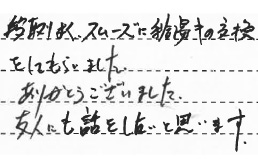 段取りよく、スムーズに給湯器の交換
をしてもらいました。
ありがとうございました。
友人にも話をしたいと思います。